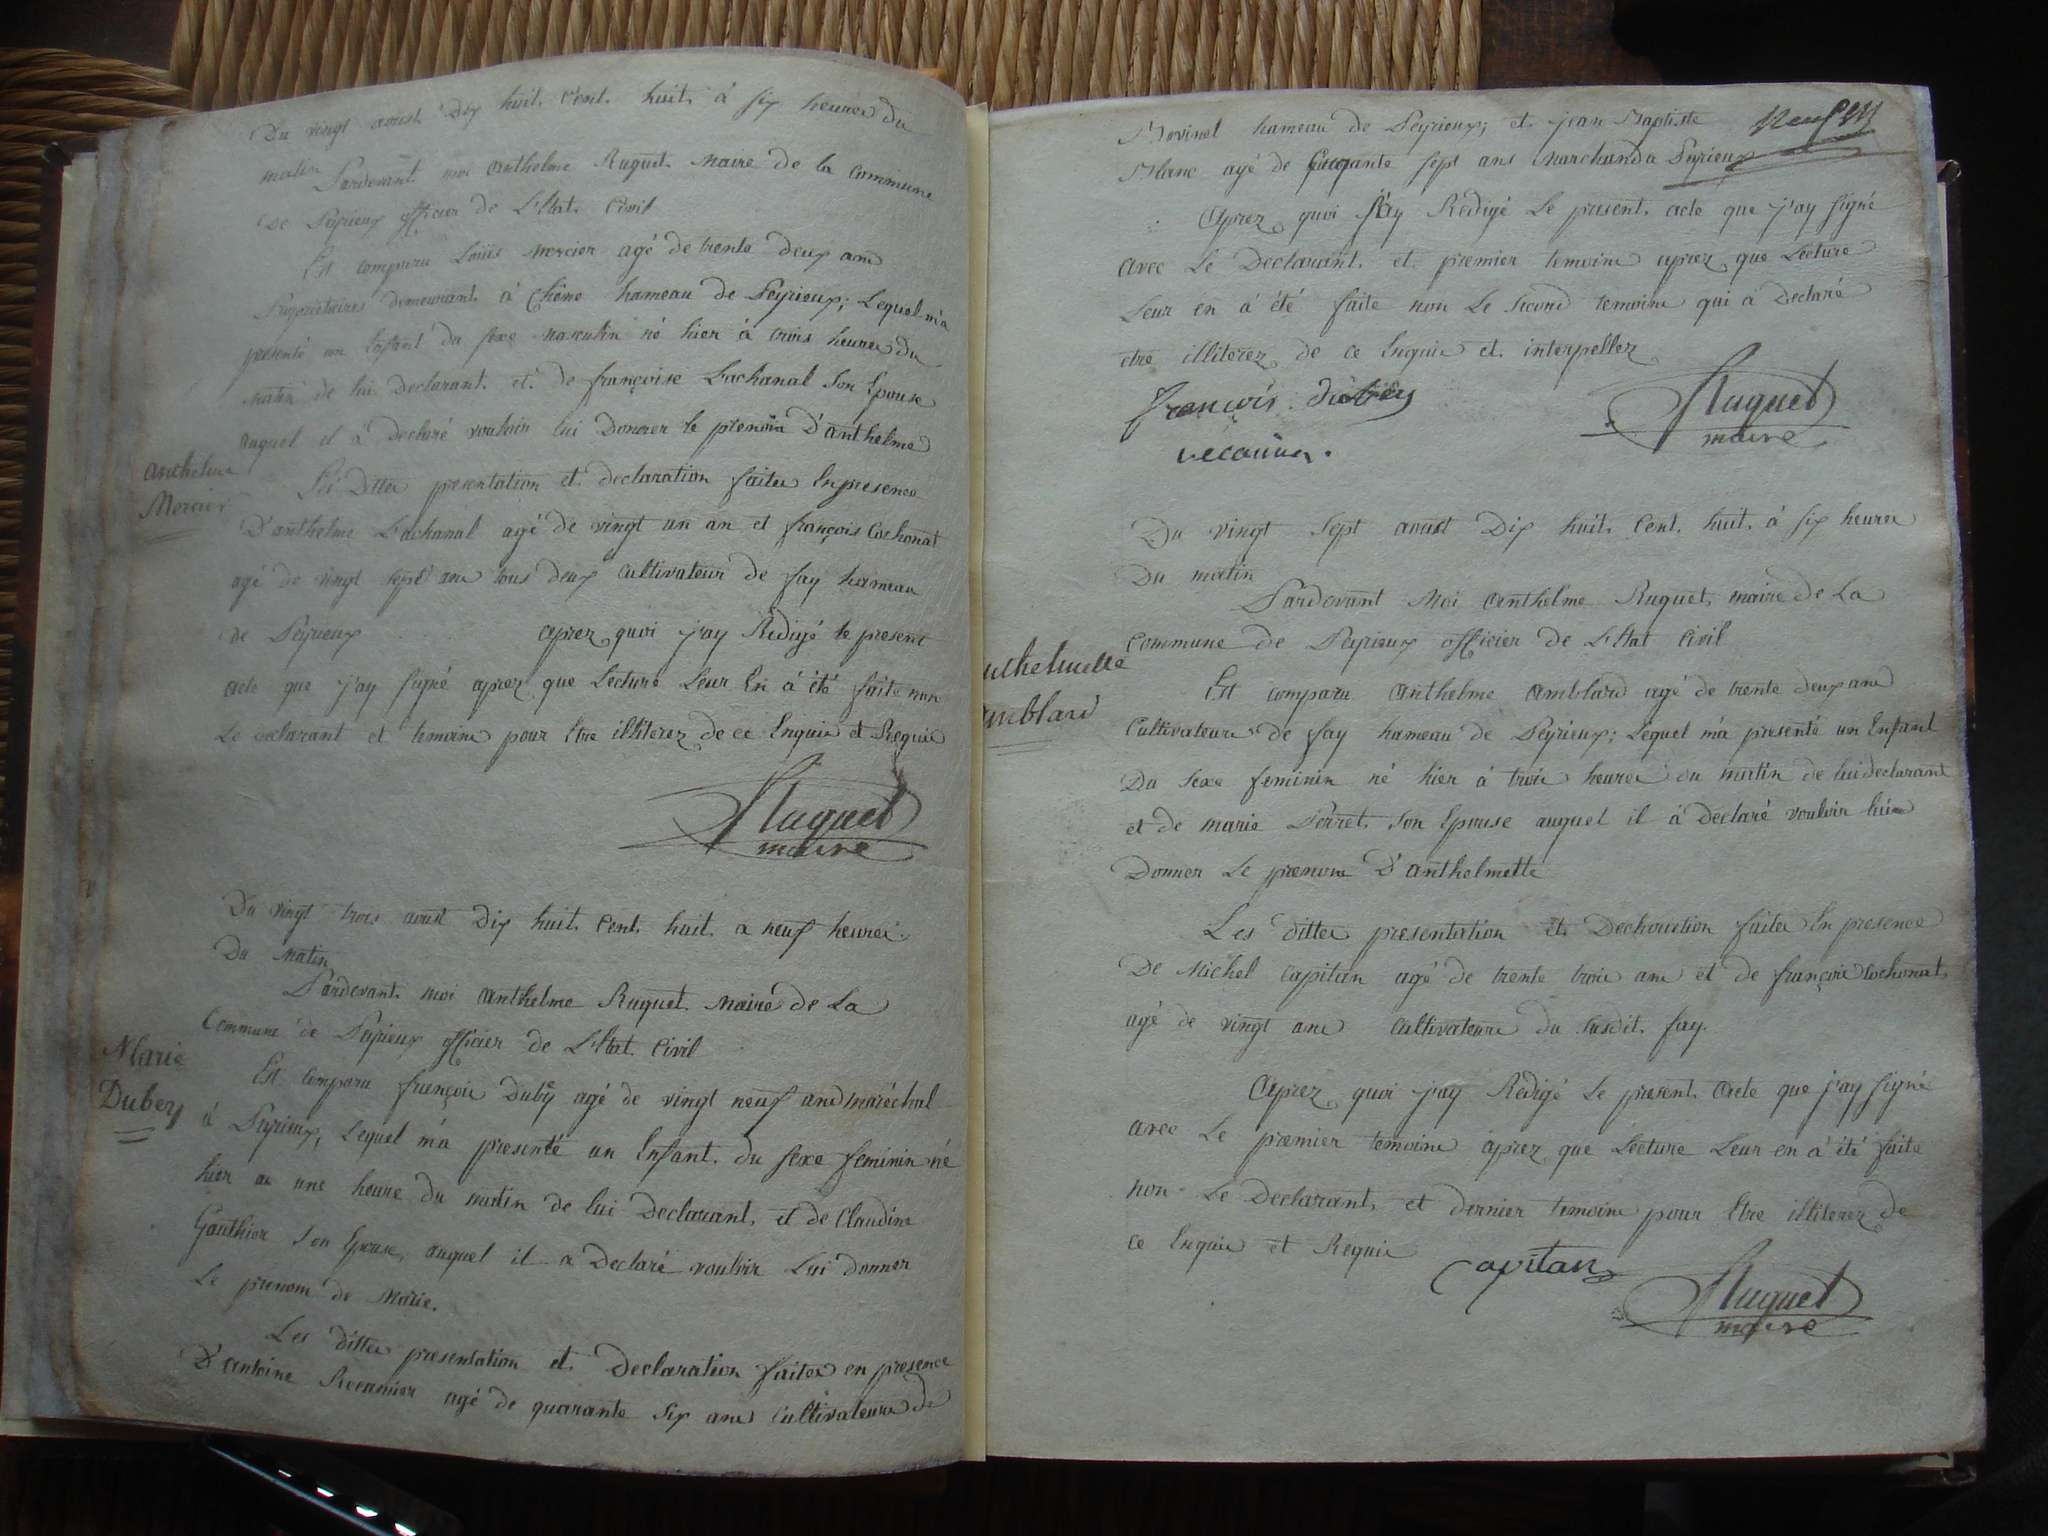 Du vingt aoust Dix huit Cent huit à six heures du
matin
Pardevant moi anthelme Ruguet Maire de la Commune
de Peyrieux officier de L'Etat Civil
Est comparu Louis Mercier agé de trente deux ans
Propriétaires demeurant à Chêne hameau de Peyrieux; Lequel m'a
presenté un Enfant du sexe masculin né hier à trois heures du
matin de lui Declarant et de françoise Lachanal Son Epouse
auquel il à Declaré vouloir lui Donner le prenom D'anthelme
anthelme
Mercier
Les Dittes presentation et declaration faites En presence
D'anthelme Lachanal agé de vingt un an et françois Cochonat
agé de vingt sept ans tous deux cultivateur de fay hameau
de Peyrieux aprez quoi j'ay Rédigé le present
acte que j'ay signé aprez que Lecture Leur En à été faite non
Le declarant et temoins pour Etre illiterez de ce Enquis et Requis
Ruguet
maire
Du vingt trois aoust Dix huit Cent huit a neuf heures
Du Matin
Pardevant moi anthelme Ruguet Maire de La
Commune de Peyrieux officier de L'Etat Civil
Marie
Dubey
Est comparu françois Dubey agé de vingt neuf ans maréchal
à Peyrieux, Lequel m'a presenté un Enfant du sexe feminin né
hier a une heure du matin de lui Declarant, et de Claudine
Gauthier Son Epouse, auquel il a Declaré vouloir Lui donner
Le prenom de Marie.
Les dittes presentation et Declaration faites en presence
D'antoine Recamier agé de quarante six ans Cultivateur de
hameau de Peyrieux; et jean Baptiste
Blanc agé de sept ans Marchand a Peyrieux
Aprez quoi j'ay Redigé Le present acte que j'ay signé
avec Le Declarant et premier temoins aprez que Lecture
Leur en à été faite non Le second temoins qui à Declaré
etre illiterez de ce Enquis et interpellez
françois dubey
recamier
Ruguet
maire
Du vingt Sept aoust Dix huit Cent huit à six heures
Du matin
Pardevant Moi anthelme Ruguet maire de La
Commune de Peyrieux officier de L'Etat Civil
nthelmette
mblard
Est comparu anthelme amblard agé de trente deux ans
Cultivateurs de fay hameau de Peyrieux; Lequel m'à presenté un Enfant
Du sexe feminin né hier à trois heures du matin de lui declarant
et de marie Perret Son Epouse auquel il à Declaré vouloir lui
Donner Le prenom D'anthelmette
Les dittes presentation et Declaration faites En presence
De Michel Capitan agé de trente trois ans et de françois Cochonat
agé de vingt ans cultivateurs du susdit fay.
Aprez quoi j'ay Rédigé Le present acte que j'ay signé
avec Le premier temoins aprez que Lecture Leur en à été faite
non Le Declarant et dernier temoins pour Etre illiterez de
ce Enquis et Requis
Capitan
Ruguet
maire